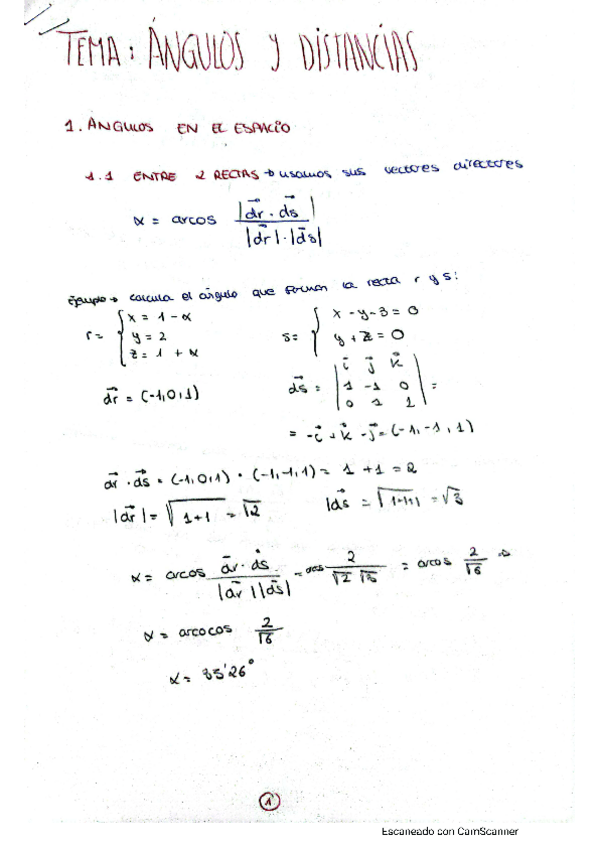 TEMA: ÁNGULOS Y DISTANCIAS
1. ÁNGULOS EN EL ESPACIO
1.1 ENTRE 2 RECTAS → usamos sus vectores directores
α = arcos |d⃗r · d⃗s| / |d⃗r| · |d⃗s|
Ejemplo → calcula el ángulo que forman la recta r y s:
r = { x = 1 - α
y = 2
z = 1 + α
s = { x - y - 3 = 0
y + z = 0
d⃗r = (-1,0,1)
d⃗s = | i⃗ j⃗ k⃗ |
| 1 -1 0 | =
| 0 1 1 |
= -i⃗ + k⃗ - j⃗ = (-1, -1, 1)
d⃗r · d⃗s = (-1,0,1) · (-1,-1,1) = 1 + 1 = 2
|d⃗r| = √1+1 = √2 |d⃗s = √1+1+1 = √3
α = arcos d⃗r · d⃗s / |d⃗r| |d⃗s| = arcos 2 / √2 √3 = arcos 2/√6 ⇒
α = arcocos 2/√6
α = 35'26°
1
Escaneado con CamScanner